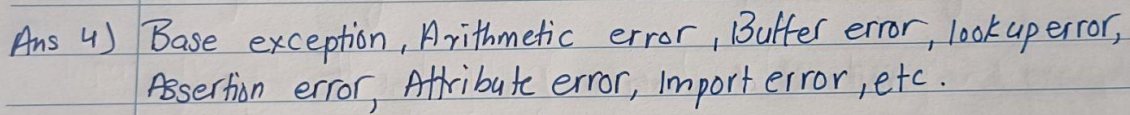 Ans 4) Base exception, Arithmetic error, Buffer error, lookup error,
Assertion error, Attribute error, Import error, etc.